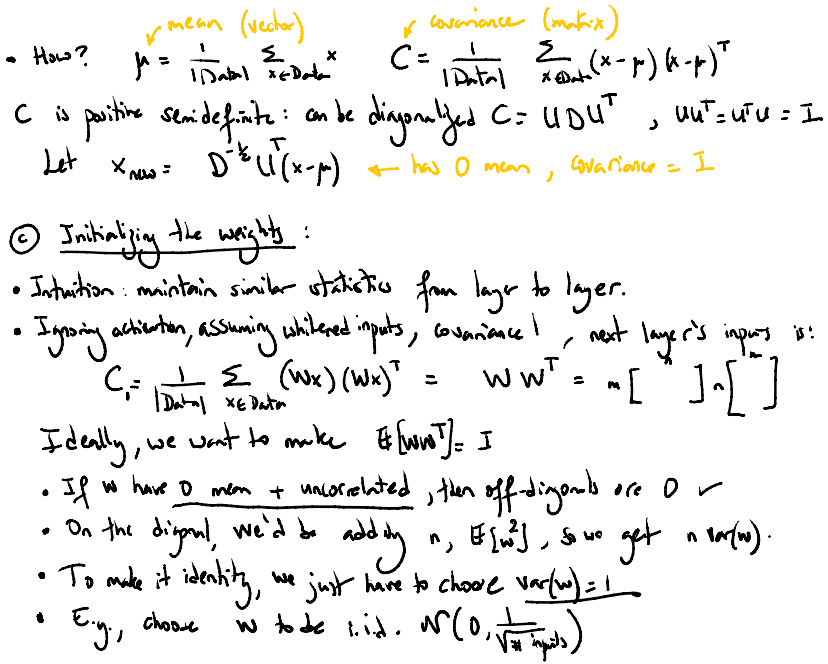 mean (vector) covariance (matrix)
• How? μ = 1/|Data| Σ_{x∈Data} x C = 1/|Data| Σ_{x∈Data} (x-μ)(x-μ)^T
C is positive semidefinite: can be diagonalized C = UDU^T, UU^T = U^TU = I
Let x_new = D^{-1/2} U^T(x-μ) ← has 0 mean, covariance = I
ⓒ Initializing the weights:
• Intuition: maintain similar statistics from layer to layer.
• Ignoring activation, assuming whitened inputs, covariance 1, next layer's inputs is:
C_1 = 1/|Data| Σ_{x∈Data} (Wx)(Wx)^T = WW^T = m[ n ] n[ m ]
Ideally, we want to make E[WW^T] = I
• If W have 0 mean + uncorrelated, then off-diagonals are 0 ✓
• On the diagonal, we'd be adding n, E[w^2], so we get n var(w).
• To make it identity, we just have to choose var(w) = 1
• E.g., choose W to be i.i.d. N(0, 1/√# inputs)